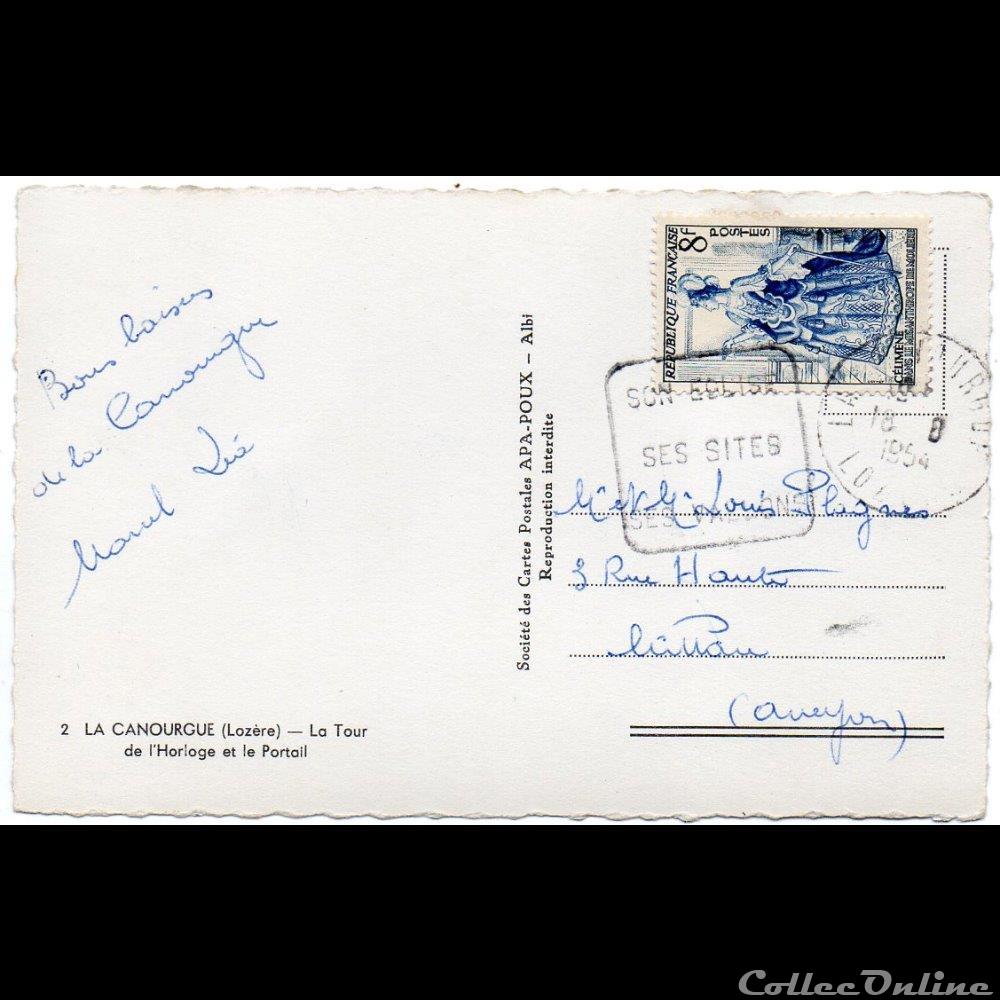 Bons baisers
de la Canourgue
Marcel
2 LA CANOURGUE (Lozère) — La Tour
de l'Horloge et le Portail
Société des Cartes Postales APA-POUX — Albi
Reproduction interdite
RÉPUBLIQUE FRANÇAISE
8f
POSTES
CÉLIMÈNE
DANS LE MISANTHROPE DE MOLIÈRE
SON EGLISE
SES SITES
SES VALLONS
18 8
1954
Mr et Me Louis Plagnes
3 Rue Haute
Millau
(Aveyron)
CollecOnline